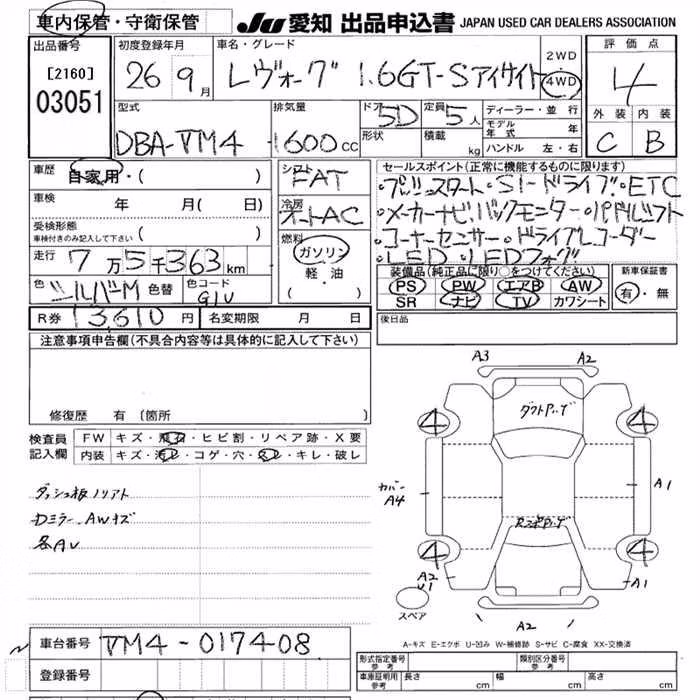 車内保管・守衛保管
JU 愛知 出品申込書 JAPAN USED CAR DEALERS ASSOCIATION
出品番号 [2160] 03051
初度登録年月 26年9月
車名・グレード レヴォーグ 1.6GT-Sアイサイト
2WD 4WD
評価点 4
外装 内装
C B
型式 DBA-VM4
排気量 1600cc
ドア 5D
定員 5人
形状 積載 kg
ディーラー・並行
モデル年式 年
ハンドル 左・右
車歴 自家用・( )
車検 年 月( 日)
受検形態 車検付きのみ記入して下さい ( )
走行 7万5千363km
色 シルバーM 色替 色コード G1U
R券 13,610円 名変期限 月 日
シフト FAT
冷房 オートAC
燃料 ガソリン 軽油 ( ・ )
セールスポイント(正常に機能するものに限ります)
・プッシュスタート・SI-ドライブ・ETC
・メーカーナビ・バックモニター・パドルシフト
・コーナーセンサー・ドライブレコーダー
・LED・LEDフォグ
装備品(純正品に限り○をつけてください)
PS PW エアB AW
SR ナビ TV カワシート
新車保証書 有・無
後日品
注意事項申告欄(不具合内容等は具体的に記入して下さい)
修復歴 有 〔箇所 〕
検査員記入欄
FW キズ・飛石・ヒビ割・リペア跡・X要
内装 キズ・汚レ・コゲ・穴・スレ・キレ・破レ
ダッシュ板ノリアト
Dミラー、AWキズ
各AU
A3 A2
ダクトP.ゲ
4 4
カバー A4
A1
RスポP.ゲ
4 4
A2 U1
A1
スペア
A2
A-キズ E-エクボ U-凹み W-補修跡 S-サビ C-腐食 XX-交換済
車台番号 VM4-017408
登録番号
形式指定番号 参考 類別区分番号 参考
車庫証明用 参考 長さ cm 幅 cm 高さ cm